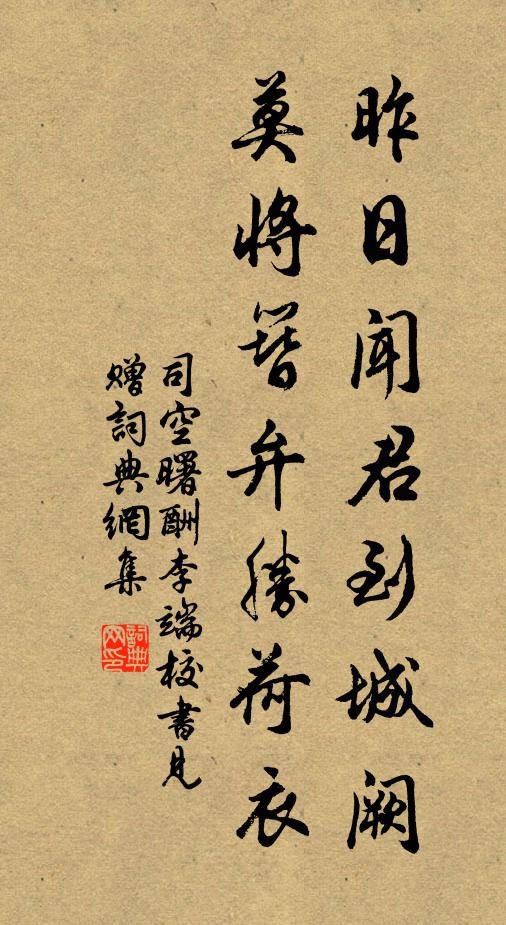 昨日聞君到城闕
莫將簪弁勝荷衣
司空曙酬李端校書見
贈詞典網集
詞典
网印